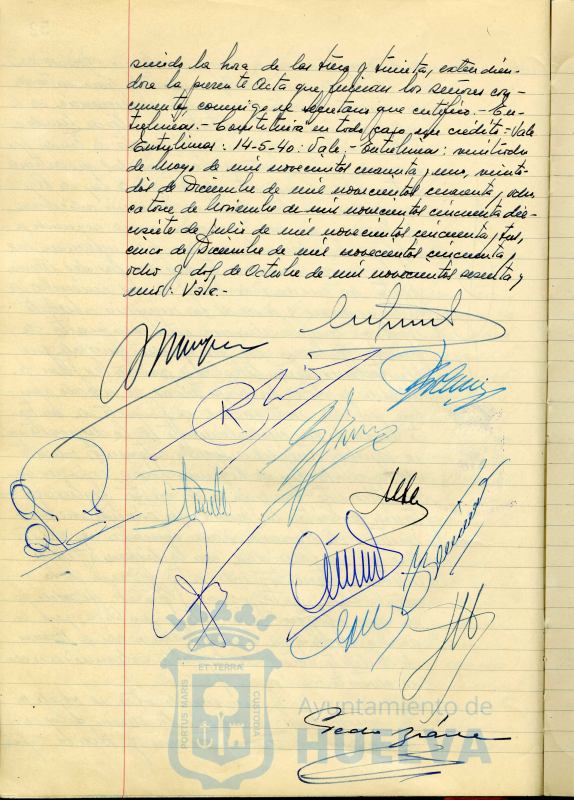 siendo la hora de las trece y treinta, extendién-
dose la presente Acta que, firman los señores con-
currentes, conmigo el secretario que certifico.- En-
trelíneas.- Constituirá en todo caso, un crédito.- Vale
Entrelíneas: 14-5-40: Vale.- Entrelíneas: veintiocho
de Mayo de mil novecientos cuarenta y uno, veinti-
dos de Diciembre de mil novecientos cuarenta y ocho
catorce de Noviembre de mil novecientos cincuenta, die-
cisiete de Julio de mil novecientos cincuenta y tres,
cinco de Diciembre de mil novecientos cincuenta y
ocho y dos de Octubre de mil novecientos sesenta y
uno: Vale.-
ET TERRÆ
PORTUS MARIS
CUSTODIA
Ayuntamiento de
HUELVA